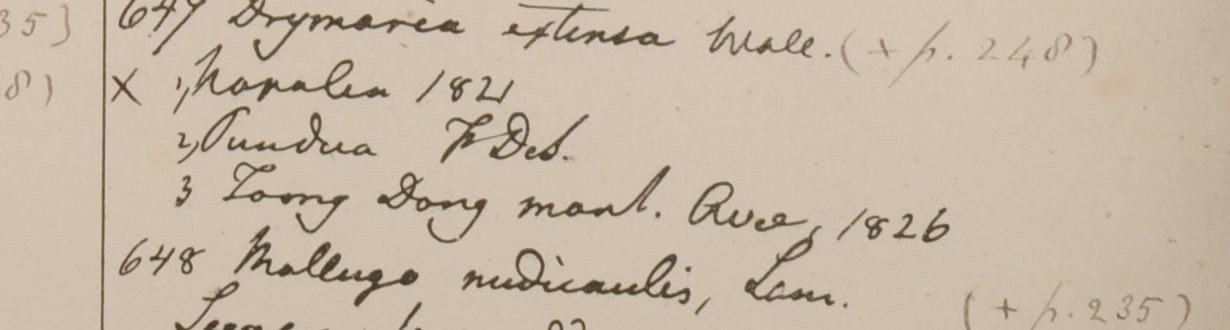 35)
647 Drymaria extensa Wall. (+ p. 248)
8)
X 1, Napalia 1821
2, Pundua F. DeS.
3 Toong Dong mont. Ava, 1826
648 Mollugo nudicaulis, Lam.
(+ p. 235)